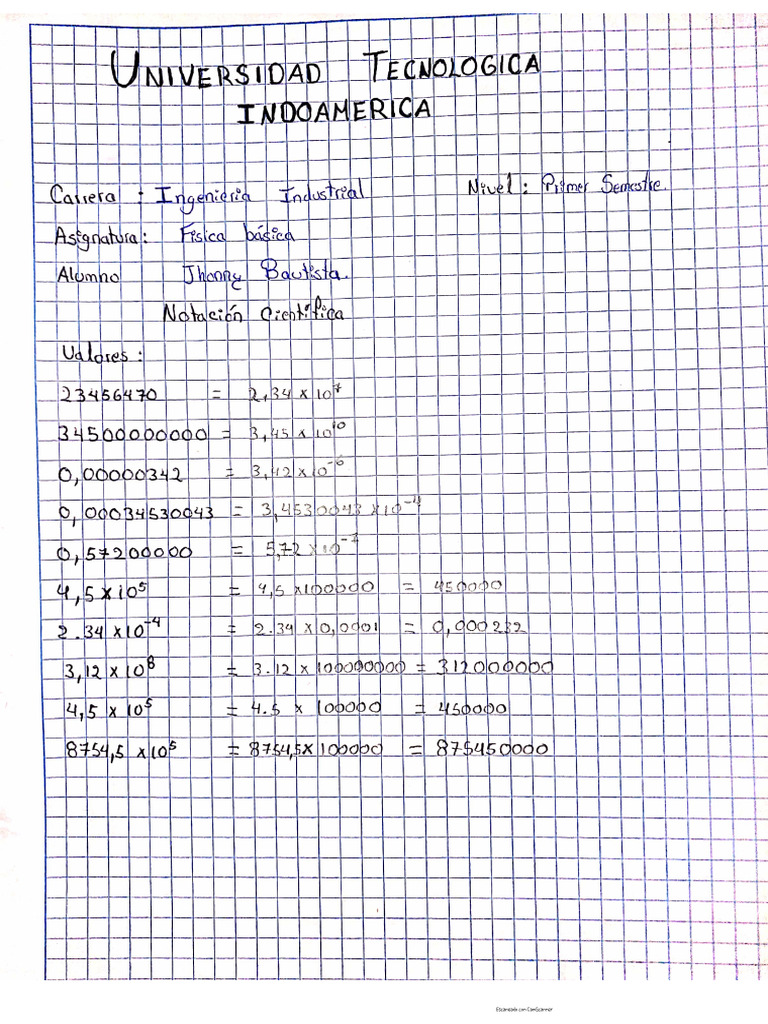 UNIVERSIDAD TECNOLOGICA
INDOAMERICA
Carrera : Ingenieria Industrial Nivel: Primer Semestre.
Asignatura: Física básica
Alumno Jhonny Bautista.
Notación Científica
Valores:
23456470 = 2,34 x 10⁷
34500000000 = 3,45 x 10¹⁰
0,00000342 = 3,42 x 10⁻⁶
0,00034530043 = 3,4530043 x 10⁻⁴
0,57200000 = 5,72 x 10⁻¹
4,5 x 10⁵ = 4,5 x 100000 = 450000
2.34 x 10⁻⁴ = 2.34 x 0,0001 = 0,000232
3,12 x 10⁸ = 3.12 x 100000000 = 312000000
4,5 x 10⁵ = 4.5 x 100000 = 450000
8754,5 x 10⁵ = 8754,5 x 100000 = 875450000
Escaneado con CamScanner